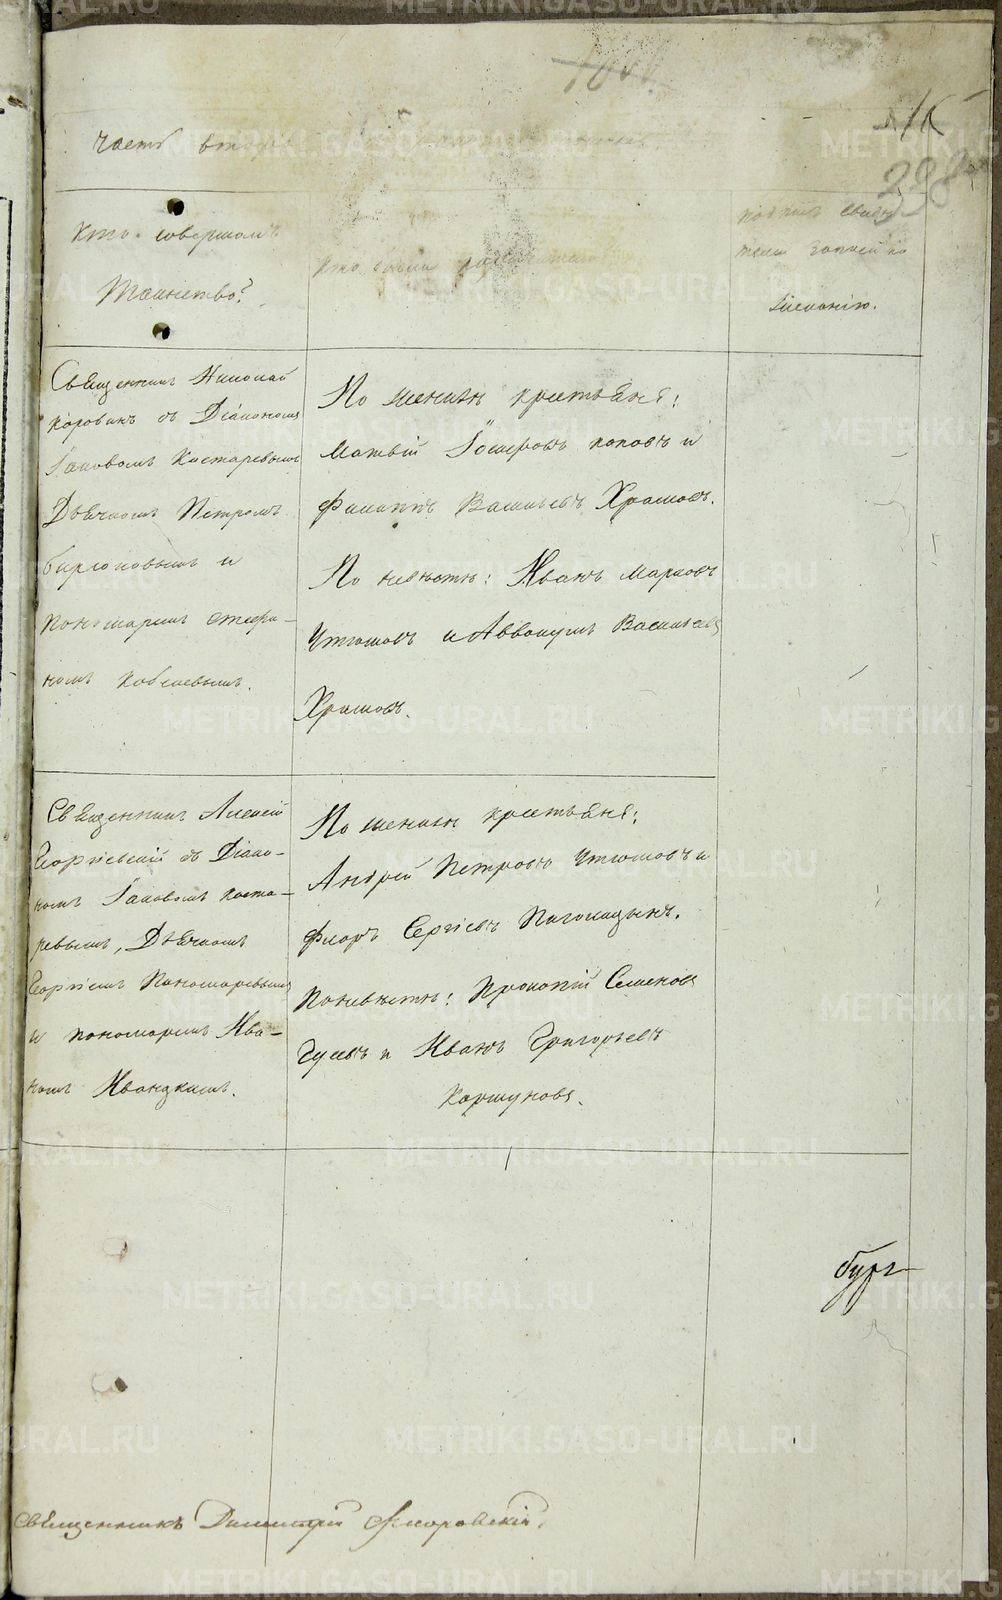 часть вторая
Кто совершалъ
Таинство?
кто были
подпись свидѣ
телей записи по
желанію.
398
Священникъ Николай
Коровинъ съ Діакономъ
Іаковомъ Костаревымъ
Дьячкомъ Петромъ
Бирюковымъ и
пономаремъ Стефа-
номъ Кобелевымъ.
По женихѣ крестьяне:
Матвій Іосифовъ Поповъ и
Филиппъ Васильевъ Храмовъ.
По невѣстѣ: Иванъ Марковъ
Утюмовъ и Аввакумъ Васильевъ
Храмовъ.
Священникъ Алексій
Георгіевскій съ Діако-
номъ Іаковомъ Коста-
ревымъ, Дьячкомъ
Георгіемъ Пономаревымъ
и пономаремъ Ива-
номъ Иваницкимъ.
По женихѣ крестьяне:
Андрей Петровъ Утюмовъ и
Флоръ Сергіевъ Паголицынъ.
По невѣстѣ: Прокопій Семеновъ
Гусевъ и Иванъ Григорьевъ
Коршуновъ.
бург
Священникъ Димитрій Флоровскій.
METRIKI.GASO-URAL.RU